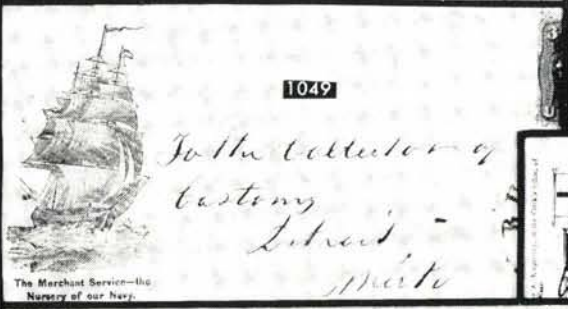 1049
To the Collector of
Customs
Detroit
Mich
The Merchant Service—the
Nursery of our Navy.